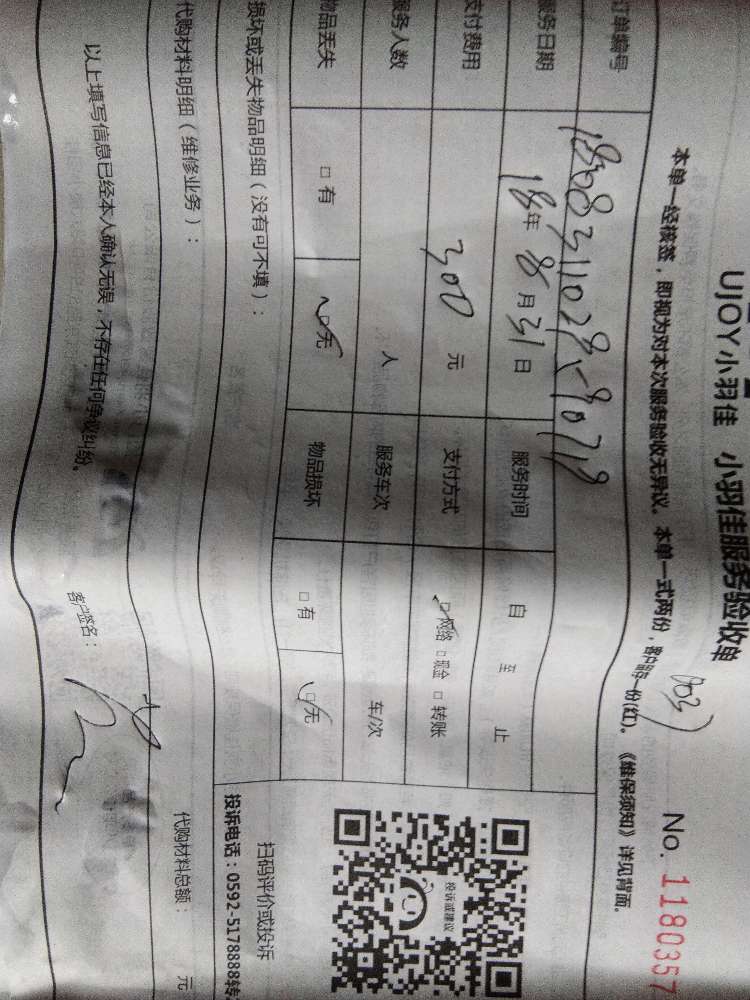 UJOY小羽佳 小羽佳服务验收单
No. 1180357
本单一经核签，即视为对本次服务验收无异议。本单一式两份，客户留存一份(红)。《维保须知》详见背面。
订单编号
服务日期 18年 8月31日 服务时间 自 至 止
支付费用 300 元 支付方式 □网络 □现金 □转账
服务人数 人 服务车次 车/次
物品丢失 □有 □无 物品损坏 □有 □无
投诉或建议
扫码评价或投诉
投诉电话：0592-5178888转
损坏或丢失物品明细（没有可不填）：
代购材料明细（维修业务）： 代购材料总额： 元
以上填写信息已经本人确认无误，不存在任何争议纠纷。 客户签名：